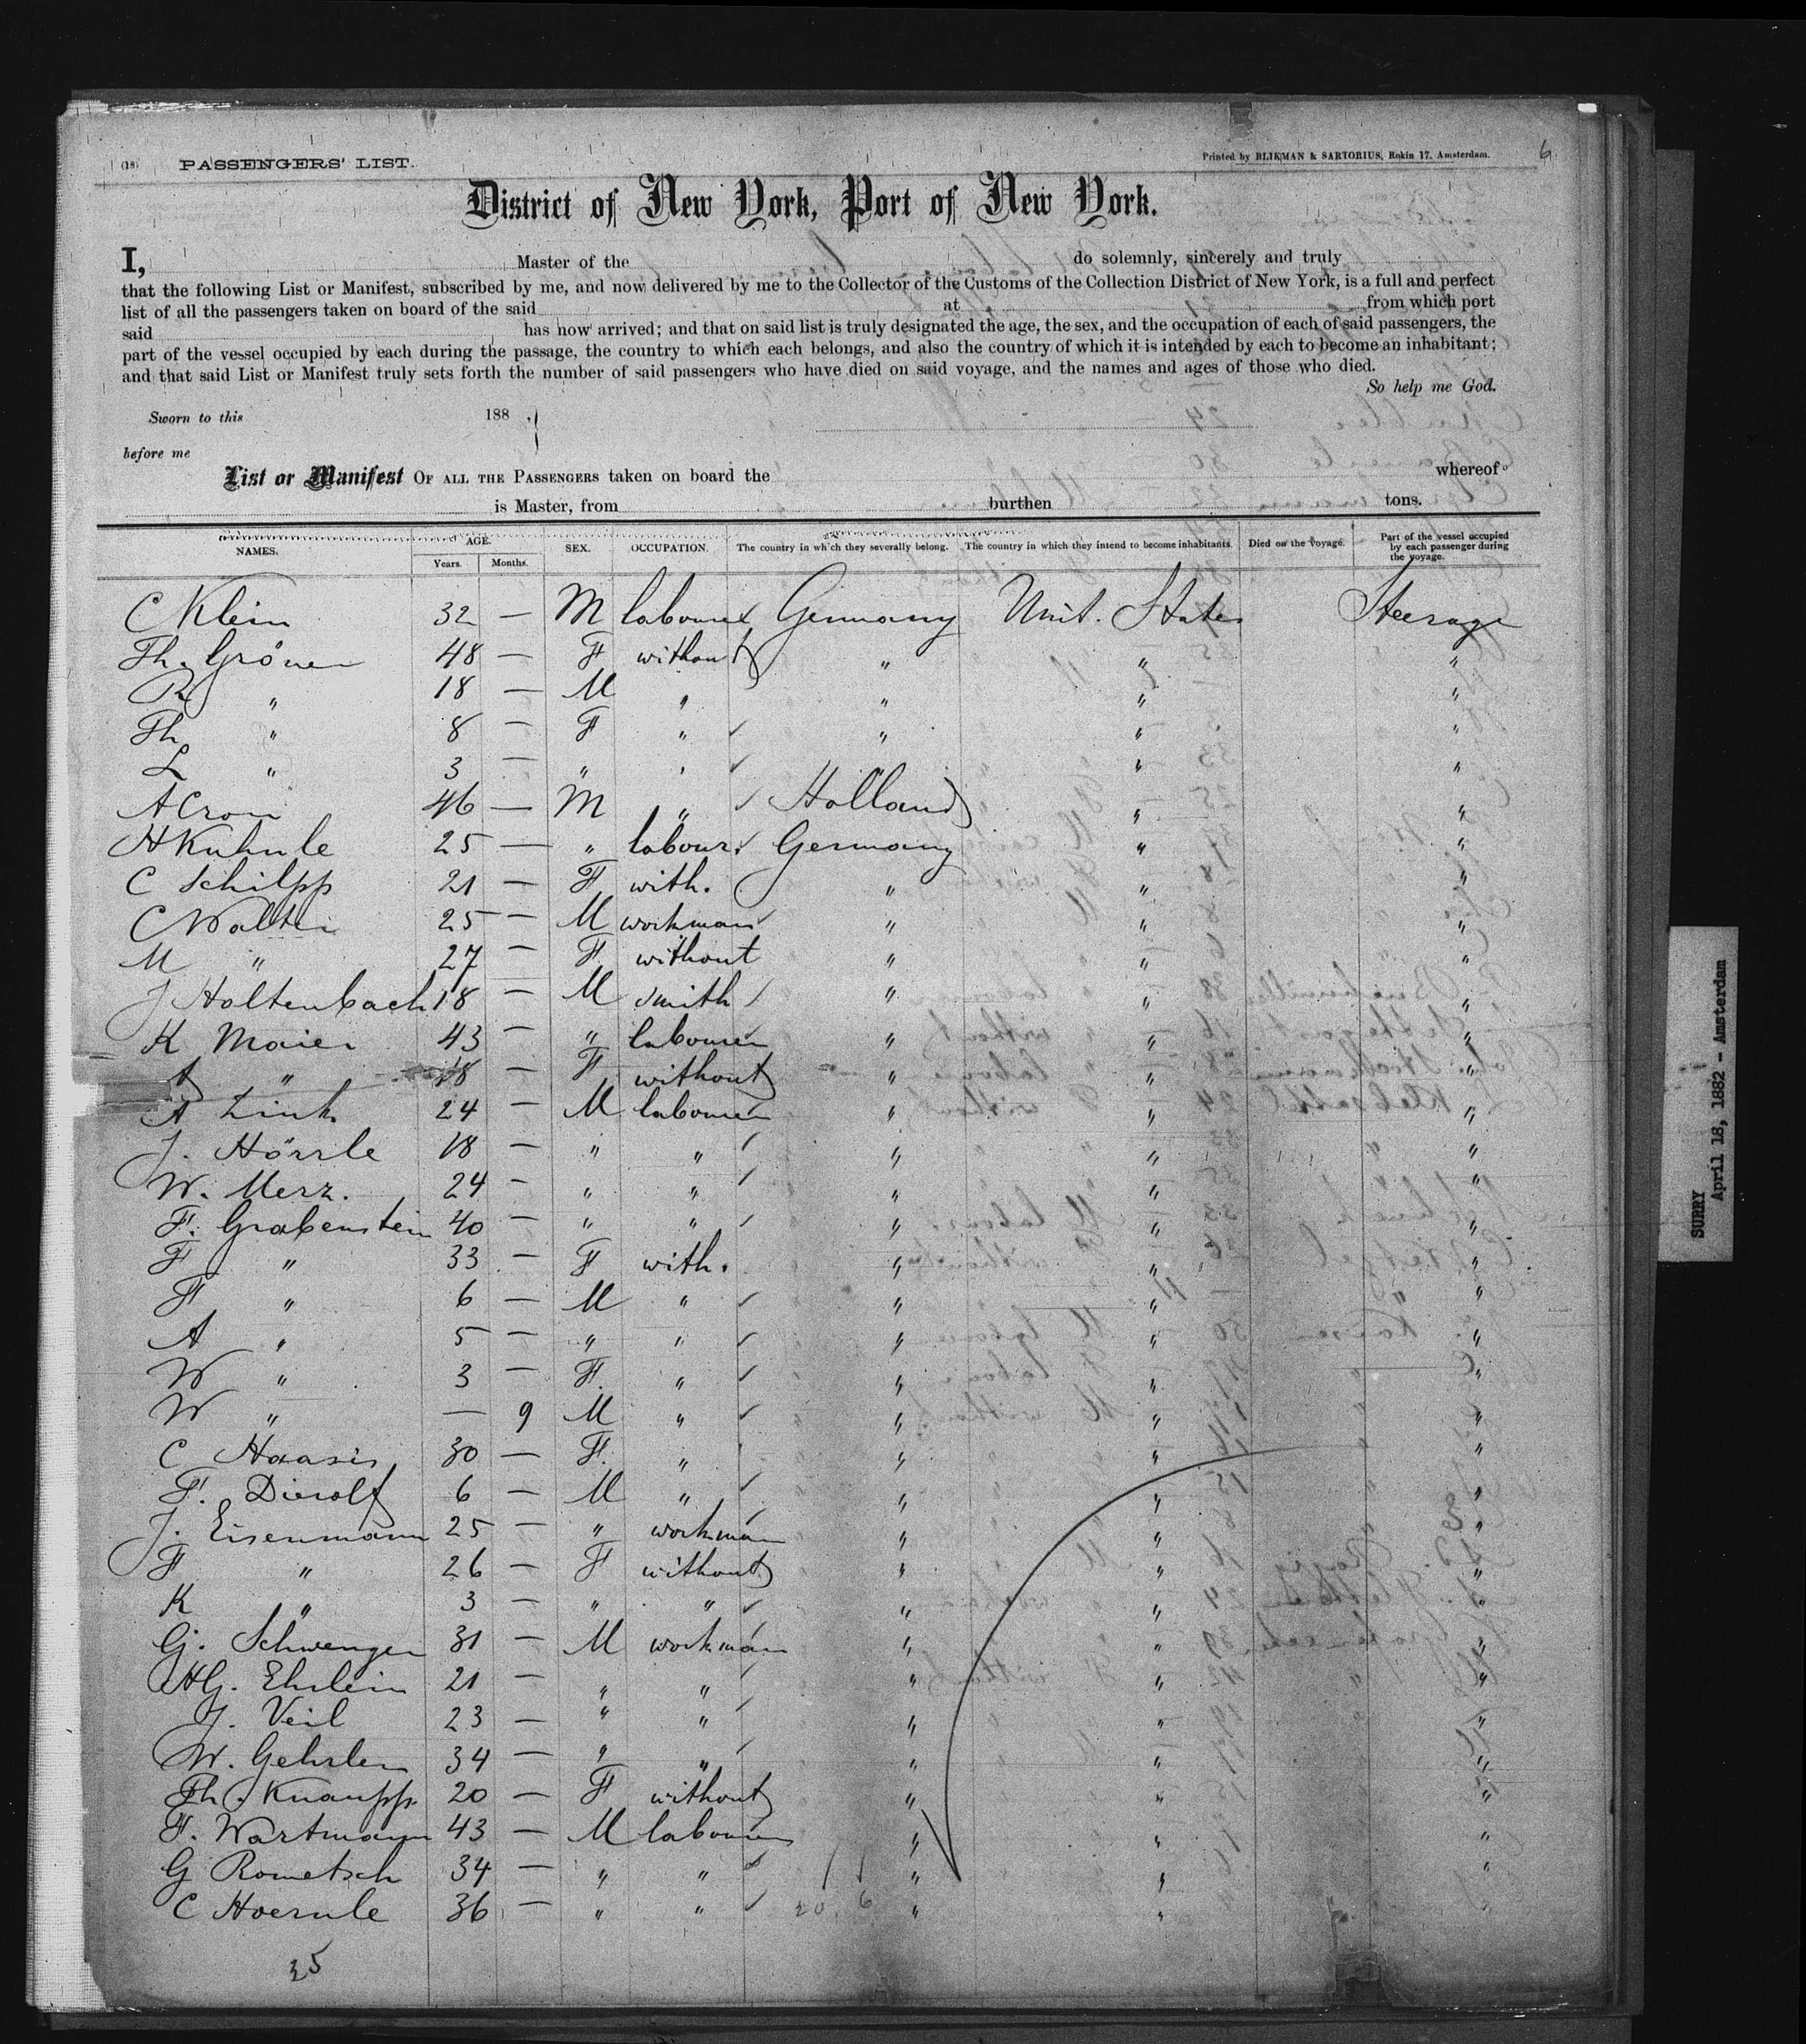 (18) PASSENGERS' LIST. Printed by BLIKMAN & SARTORIUS, Rokin 17, Amsterdam. 6
District of New York, Port of New York.
I, Master of the do solemnly, sincerely and truly
that the following List or Manifest, subscribed by me, and now delivered by me to the Collector of the Customs of the Collection District of New York, is a full and perfect
list of all the passengers taken on board of the said at from which port
said has now arrived; and that on said list is truly designated the age, the sex, and the occupation of each of said passengers, the
part of the vessel occupied by each during the passage, the country to which each belongs, and also the country of which it is intended by each to become an inhabitant;
and that said List or Manifest truly sets forth the number of said passengers who have died on said voyage, and the names and ages of those who died.
So help me God.
Sworn to this 188 .
before me
List or Manifest OF ALL THE PASSENGERS taken on board the whereof
is Master, from burthen tons.
NAMES. AGE. Years. Months. SEX. OCCUPATION. The country in which they severally belong. The country in which they intend to become inhabitants. Died on the voyage. Part of the vessel occupied by each passenger during the voyage.
C Klein 32 — M labourer Germany Unit. States Steerage
Th. Gröner 48 — F without " " "
R " 18 — M " " " "
Th " 8 — F " " " "
L " 3 — " " " " "
A Cron 46 — M " Holland " "
H Kuhnle 25 — " labour. Germany " "
C Schilpp 21 — F with. " " "
C Walter 25 — M workman " " "
M " 27 — F without " " "
J Holtenbach 18 — M smith " " "
K Maier 43 — " labourer " " "
A " 18 — F without " " "
A Link 24 — M labourer " " "
J. Hörrle 18 — " " " " "
W. Merz. 24 — " " " " "
F. Grabenstein 40 — " " " " "
F " 33 — F with. " " "
F " 6 — M " " " "
A " 5 — " " " " "
W " 3 — F. " " " "
W " — 9 M " " " "
C Haasis 30 — F. " " " "
F. Dierolf 6 — M " " " "
J. Eisenmann 25 — " workman " " "
F " 26 — F without " " "
K " 3 — " " " " "
G. Schwenger 31 — M workman " " "
HG. Ehrlein 21 — " " " " "
J. Veil 23 — " " " " "
W. Gehrlen 34 — " " " " "
Th. Knaupp. 20 — F without " " "
F. Wartmann 43 — M labourer " " "
G Rometsch 34 — " " " " "
C Hoernle 36 — " " 20. 6 " " "
35
SURRY
April 18, 1882 - Amsterdam